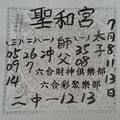 聖和宮
7月8.11.13日
太子
35
08
師父
(三)(八)(一)(六)
05 26 沖
09 27
14
六合財神俱樂部
六合彩聚樂部
二中一12.13